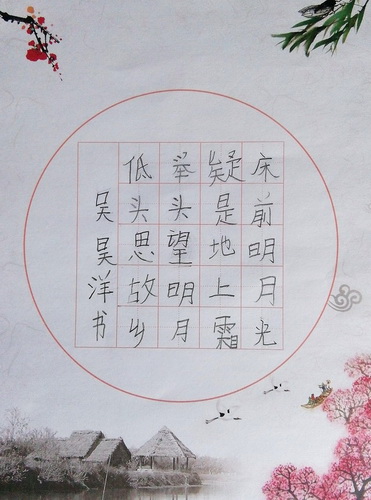 床前明月光
疑是地上霜
举头望明月
低头思故乡
吴昊洋书